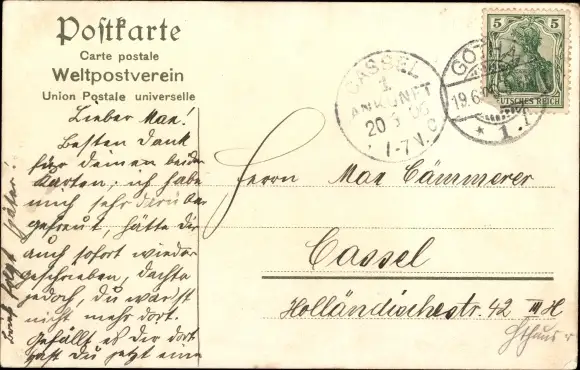 Postkarte
Carte postale
Weltpostverein
Union Postale universelle
Lieber Max!
Besten Dank
für deinen beiden
Karten; ich habe
mich sehr darüber
gefreut, hätte dir
auch sofort wieder
geschrieben, dachte
jedoch, du wär'st
nicht mehr dort.
Gefällt es dir dort
hast Du jetzt eine
Brief folgt später!
CASSEL
1
ANKUNFT
20
7-7 N.
GOTHA
19.6
* 1.
5 5
DEUTSCHES REICH
Herrn Max Cämmerer
Cassel
Holländischestr. 42 III H